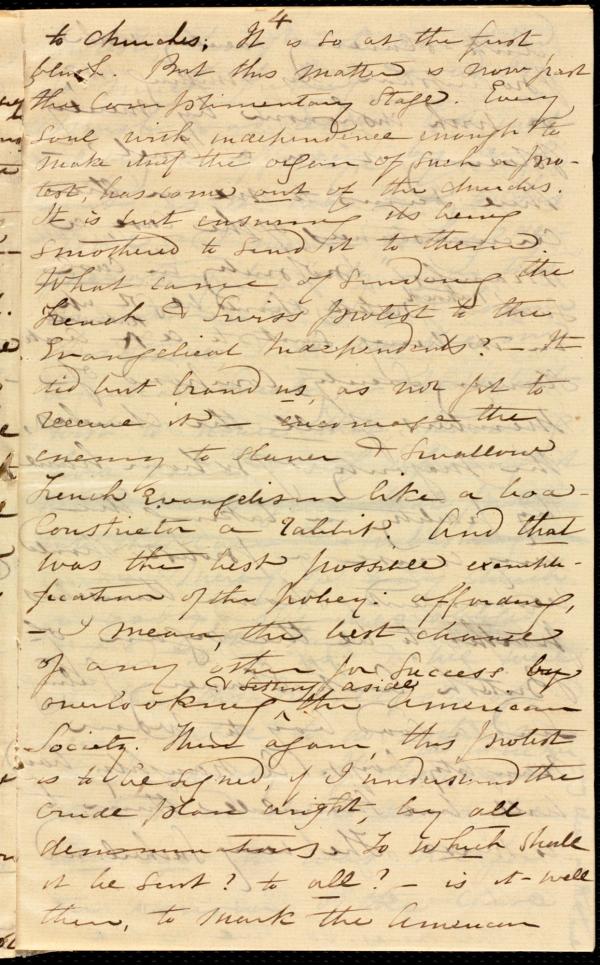 4
to churches; It is so at the first
blush. But this matter is now past
the complimentary stage. Every
soul with independence enough to
make itself the organ of such a pro-
test, has come out of the churches.
It is but ensuring its being
smothered to send it to them.
What came of sending the
French & Swiss protest to the
Evangelical Independents? - It
did but brand us, as not fit to
receive it - encourage the
enemy to slaver & swallow
French Evangelism like a boa-
Constrictor a rabbit. And that
was the best possible exempli-
fication of the policy: affording,
- I mean, the best chance
of any other for success by
& setting aside
overlooking the American
Society. Then again, this protest
is to be signed, if I understand the
crude plan aright, by all
denominations. To which shall
it be sent? to all? - is it well
then, to mark the American